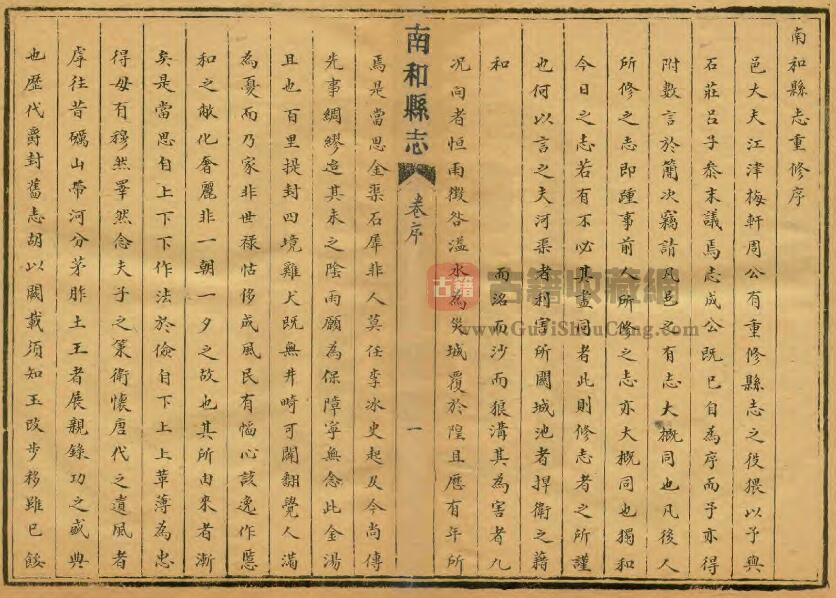 南和縣志重修序
邑大夫江津梅軒周公有重修縣志之役猥以予與
石莊呂子叅末議焉志成公既已自為序而予亦得
附數言於簡次竊請凡邑之有志大概同也凡後人
所修之志即踵事前人所修之志亦大概同也獨和
今日之志若有不必其盡同者此則修志者之所謹
也何以言之夫河渠者利害所關城池者捍衛之藉
和　而洺而沙而狼溝其為害者九
況向者恒雨徵咎溢水為災城覆於隍且歷有年所
南和縣志
卷序
一
焉是當思金渠石犀非人莫任李冰史起及今尚傳
先事綢繆迨其未之陰雨願為保障寧無念此金湯
且也百里提封四境雞犬既無井畸可闢翻覺人滿
為憂而乃家非世祿怙侈成風民有惼心該逸作慝
和之敝化奢麗非一朝一夕之故也其所由來者漸
矣是當思自上下下作法於儉自下上上革薄為忠
得毋有穆然睪然念夫子之策衛懷唐代之遺風者
虖往昔礪山帶河分茅胙土王者展親錄功之盛典
也歷代爵封舊志胡以闕載須知玉改步移雖已餒
古籍
古籍收藏網
www.GuJiShouCang.com